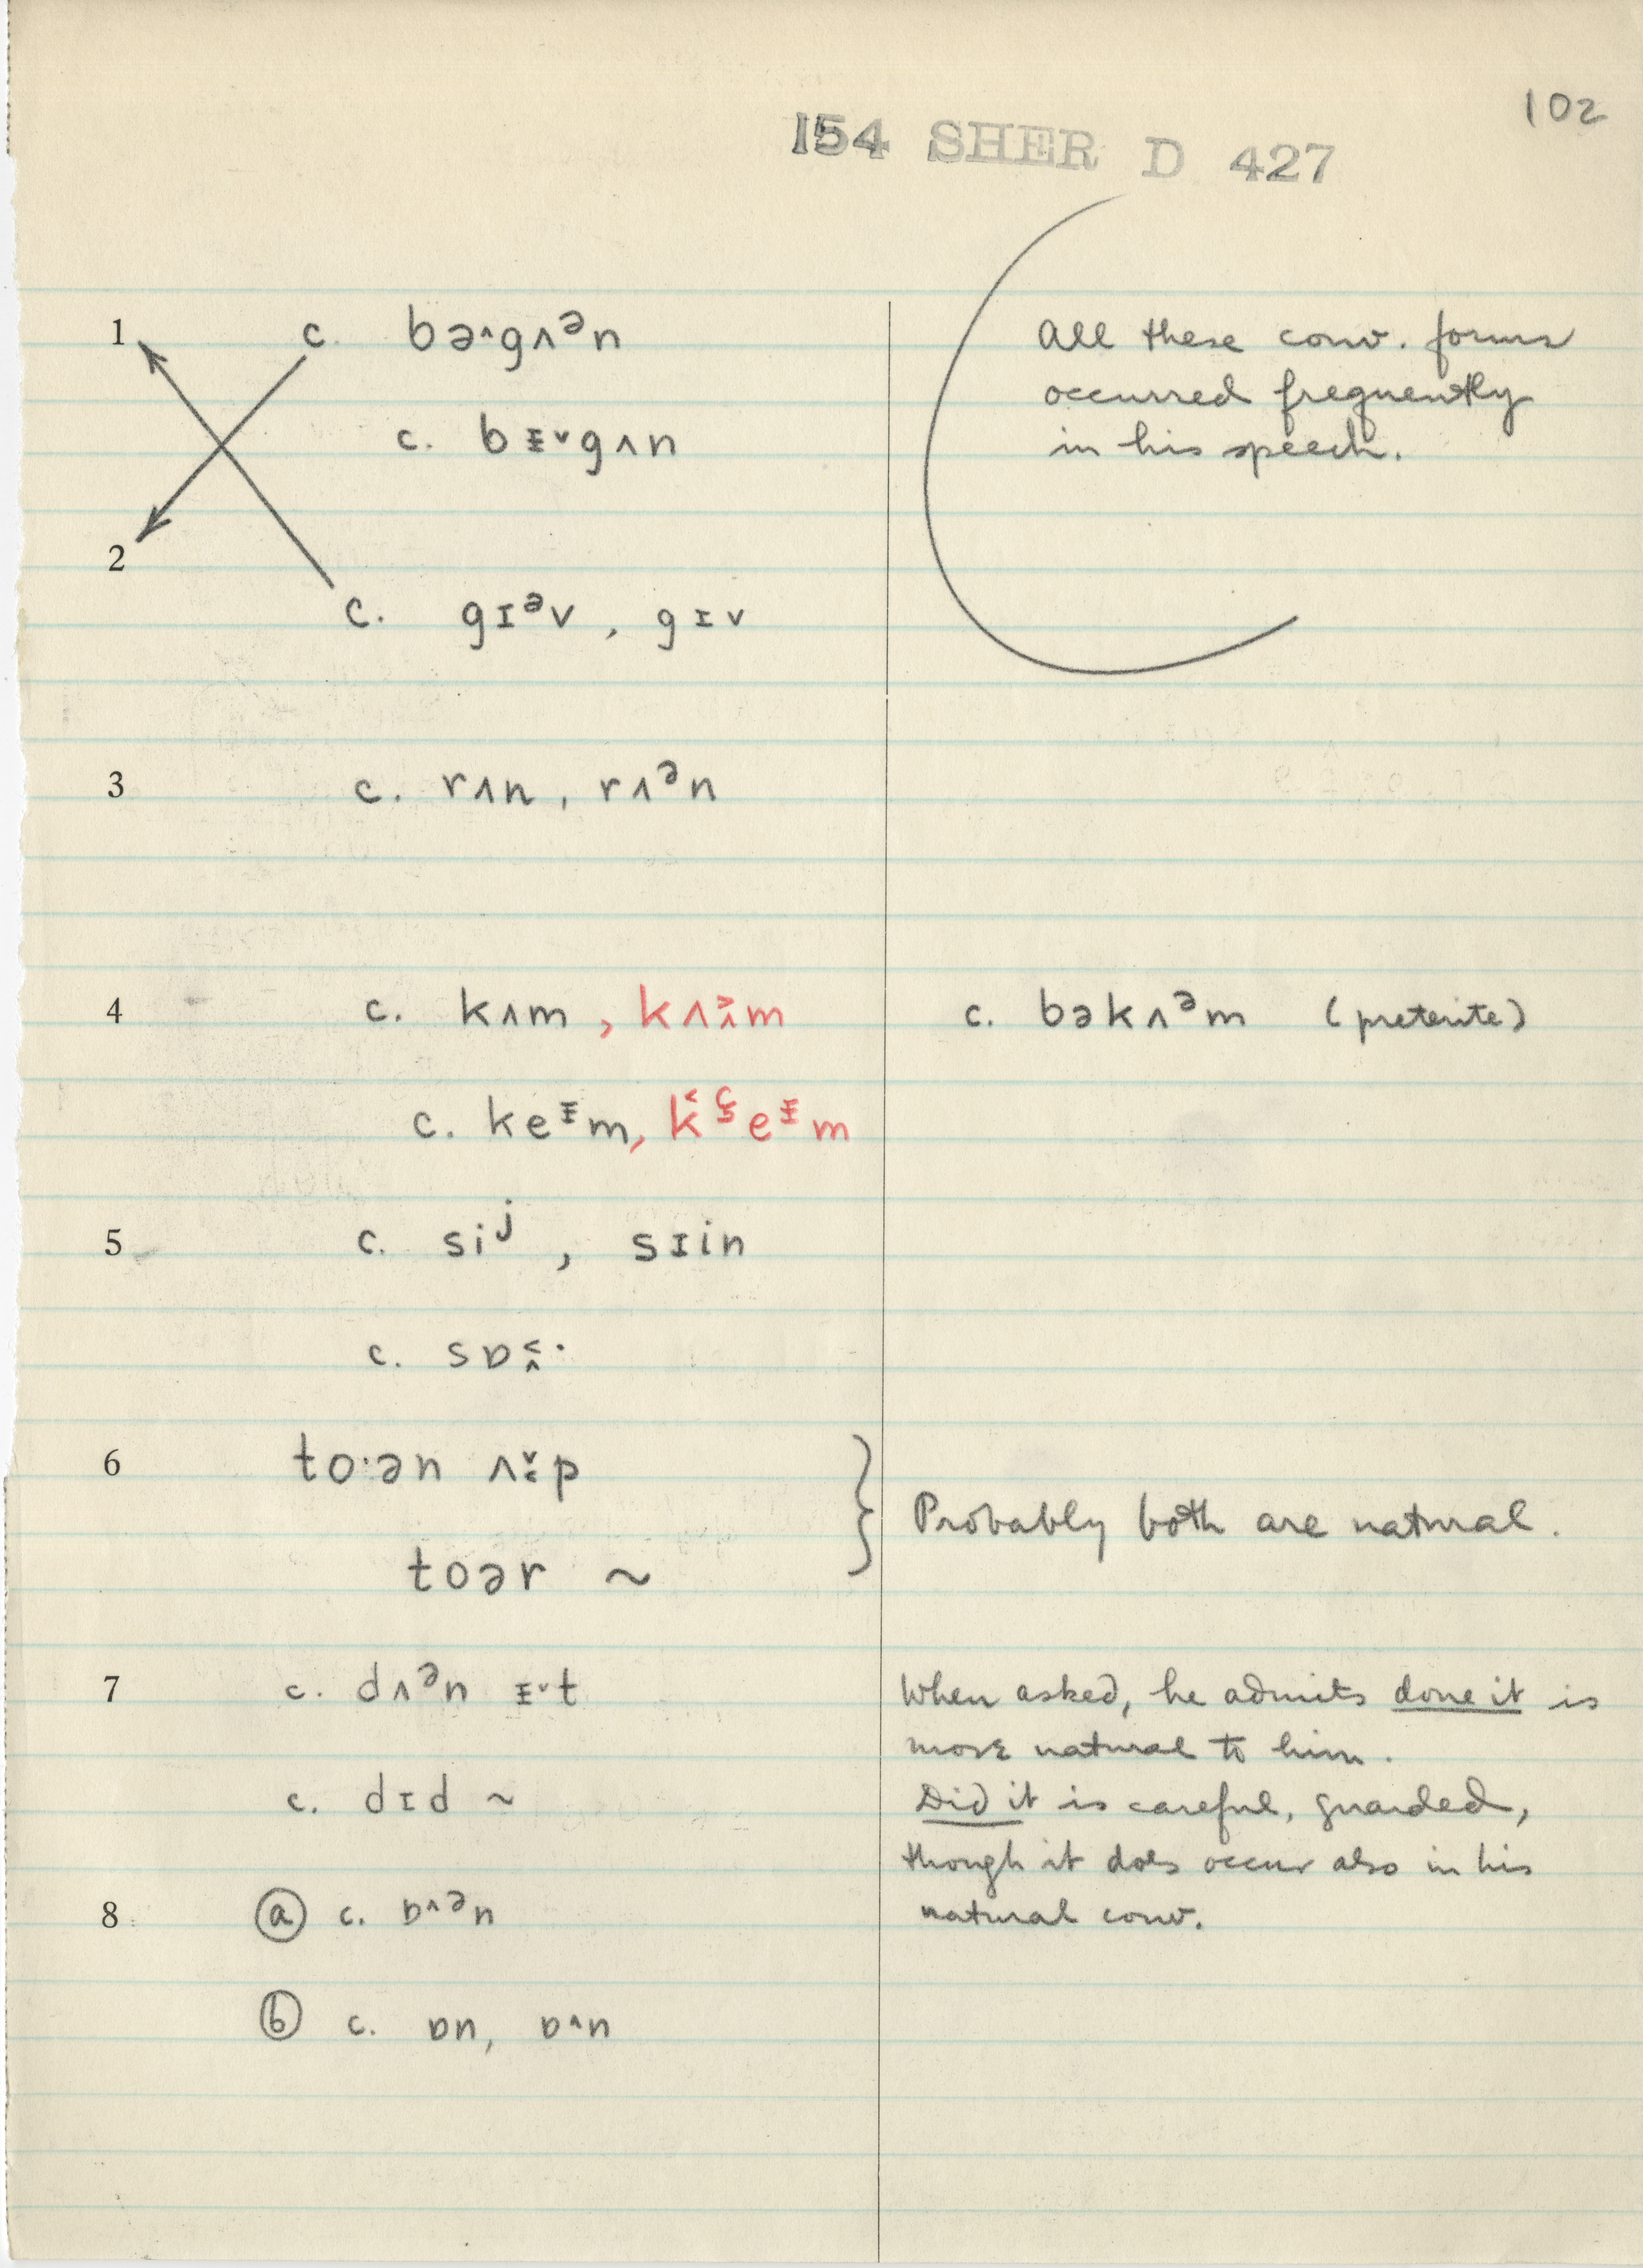 102
154 SHER D 427
1 c. bə˄gʌᵊn
All these conv. forms
occurred frequently
c. bɪ̵˅gʌn
in his speech.
2
c. gɪᵊv, gɪv
3 c. rʌn, rʌᵊn
4 c. kʌm, kʌ˃˄m
c. bəkʌᵊm (preterite)
c. keᵻm, eᵻm
5 c. siʲ, sɪin
c. sɒ˂˄·
6 to·ən ʌ˅˂p
Probably both are natural.
toər ~
7 c. dʌᵊn ᵻ˅t
When asked, he admits done it is
more natural to him.
c. dɪd ~
Did it is careful, guarded,
though it does occur also in his
8 ⓐ c. ɒ˄ᵊn
natural conv.
ⓑ c. ɒn, ɒ˄n